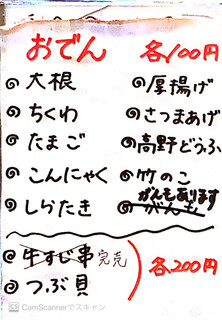 おでん 各100円
◎大根
◎ちくわ
◎たまご
◎こんにゃく
◎しらたき
◎厚揚げ
◎さつまあげ
◎高野どうふ
◎竹のこ
がんもあります
◎がんも
◎牛すじ串 完売
◎つぶ貝
各200円
CamScannerでスキャン